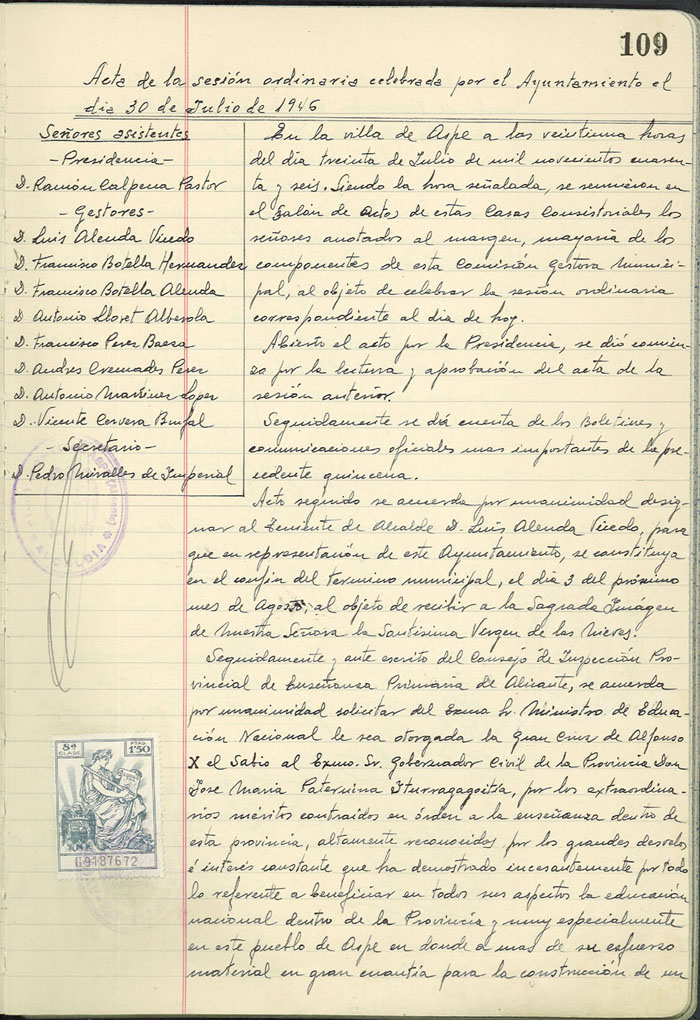 109
Acta de la sesión ordinaria celebrada por el Ayuntamiento el
dia 30 de Julio de 1946
Señores asistentes
- Presidencia -
D. Ramón Calpena Pastor
- Gestores -
D. Luis Alenda Vicedo
D. Francisco Botella Hernandez
D. Francisco Botella Alenda
D. Antonio Lloret Alberola
D. Francisco Perez Baeza
D. Andres Cremades Perez
D. Antonio Martinez Lopez
D. Vicente Cervera
- Secretario -
D. Pedro Miralles de Imperial
En la villa de Aspe a las veintiuna horas
del dia treinta de Julio de mil novecientos cuaren-
ta y seis. Siendo la hora señalada, se reunieron en
el Salón de actos de estas Casas Consistoriales los
señores anotados al margen, mayoria de los
componentes de esta Comisión Gestora Munici-
pal, al objeto de celebrar la sesión ordinaria
correspondiente al dia de hoy.
Abierto el acto por la Presidencia, se dió comien-
zo por la lectura y aprobación del acta de la
sesión anterior.
Seguidamente se da cuenta de los Boletines y
comunicaciones oficiales mas importantes de la pre-
cedente quincena.
Acto seguido se acuerda por unanimidad desig-
nar al Teniente de Alcalde D. Luis Alenda Vicedo, para
que en representación de este Ayuntamiento, se constituya
en el confin del termino municipal, el dia 3 del próximo
mes de Agosto, al objeto de recibir a la Sagrada Imágen
de Nuestra Señora la Santisima Vergen de las Nieves.
Seguidamente y ante escrito del Consejo de Inspección Pro-
vincial de Enseñanza Primaria de Alicante, se acuerda
por unanimidad solicitar del Exmo Sr. Ministro de Educa-
ción Nacional le sea otorgada la Gran Cruz de Alfonso
X el Sabio al Exmo. Sr. Gobernador Civil de la Provincia Don
Jose Maria Paternina Iturragagoitia, por los extraordina-
rios méritos contraidos en órden a la enseñanza dentro de
esta provincia, altamente reconocidos por los grandes desvelos
é interés constante que ha demostrado incesantemente por todo
lo referente a beneficiar en todos sus aspectos la educación
nacional dentro de la Provincia y muy especialmente
en este pueblo de Aspe en donde a mas de su esfuerzo
material en gran cuantía para la construcción de un
8ª CLASE
PTAS. 1'50
09187672